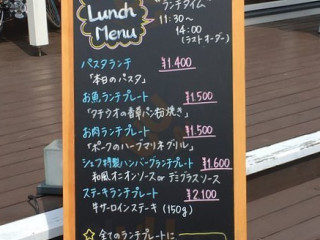 Lunch
Menu
ランチタイム
11:30～
14:00
(ラストオーダー)
パスタランチ ¥1.400
「本日のパスタ」
お魚ランチプレート ¥1.500
「タチウオの香草パン粉焼き」
お肉ランチプレート ¥1.500
「ポークのハーブマリネグリル」
シェフ特製ハンバーグランチプレート ¥1.600
和風オニオンソース or デミグラスソース
ステーキランチプレート ¥2.100
牛サーロインステーキ (150g)
☆全てのランチプレートに